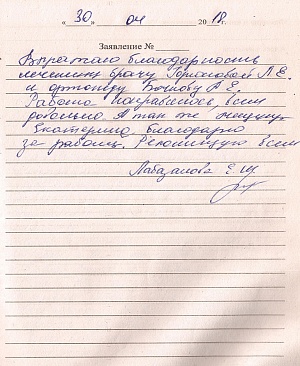 «30» 04 2018.
Заявление №
Выражаю благодарность
лечащему врачу Горшковой Л.Е.
и ортопеду Бочкову А.Е.
Работа понравилась, всем
довольна. А так же
Екатерину, благодарю
за работу. Рекомендую всем
Лабазанова Е.Ш.